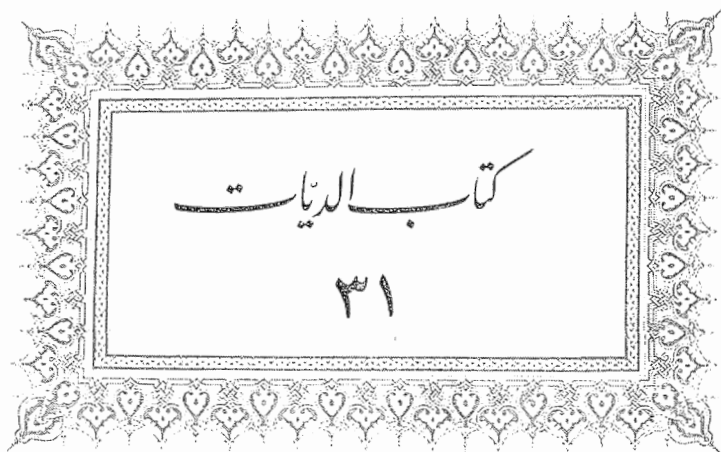 كتاب الديّات
٣١